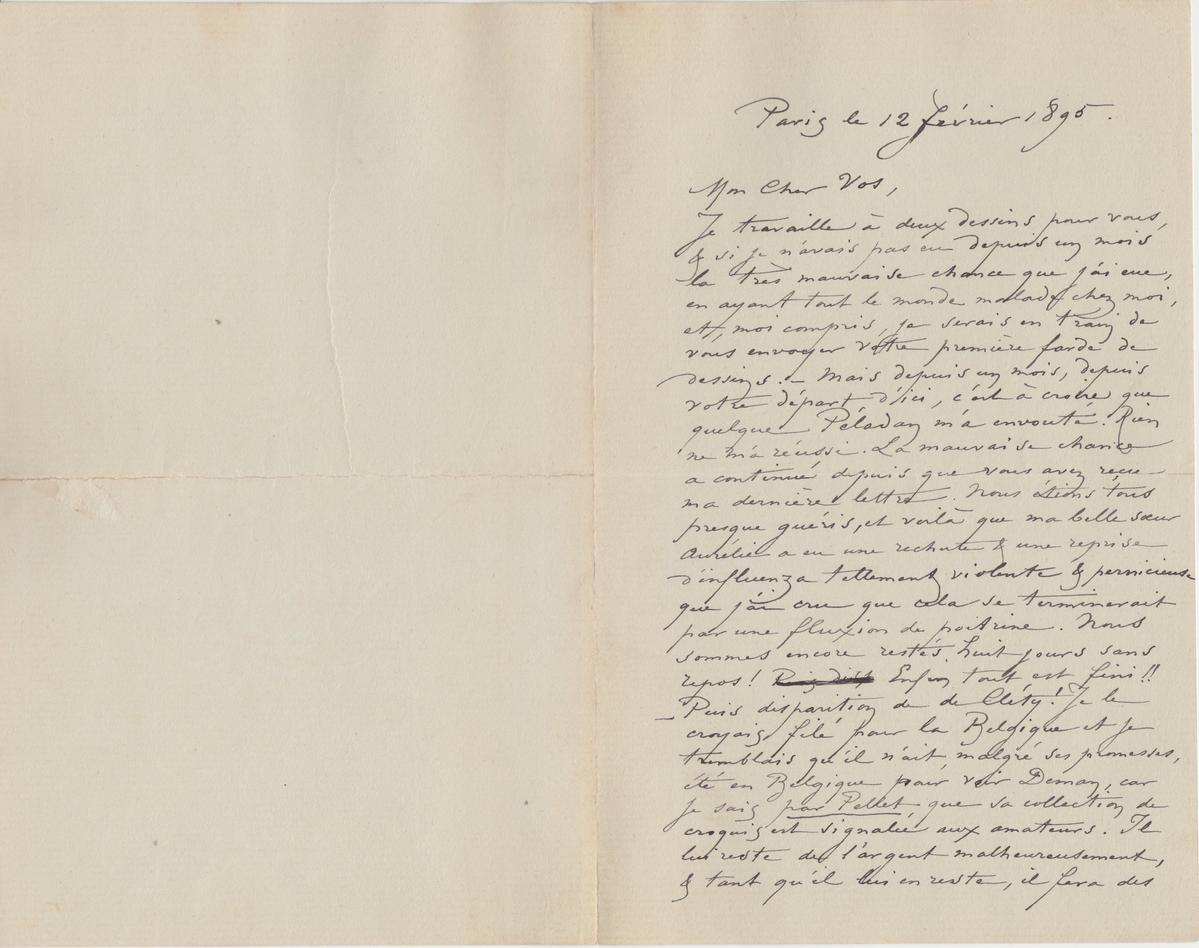 Paris le 12 février 1895.
Mon Cher Vos,
Je travaille à deux dessins pour vous,
& si je n'avais pas eu depuis un mois
la très mauvaise chance que j'ai eue,
en ayant tout le monde malade chez moi,
et, moi compris, je serais en train de
vous envoyer votre première farde de
dessins. – Mais depuis un mois, depuis
votre départ d'ici, c'est à croire que
quelque Péladan m'a envouté. Rien
ne m'a réussi. La mauvaise chance
a continué depuis que vous avez reçu
ma dernière lettre. Nous étions tous
presque guéris, et voilà que ma belle sœur
Aurélie a eu une rechute & une reprise
d'influenza tellement violente & pernicieuse
que j'ai cru que cela se terminerait
par une fluxion de poitrine. Nous
sommes encore restés huit jours sans
repos! Enfin tout est fini!!
– Puis disparition de de Cléty! Je le
croyais filé pour la Belgique et je
tremblais qu'il n'ait, malgré ses promesses,
été en Belgique pour voir Deman, car
je sais par Pellet, que sa collection de
croquis est signalée aux amateurs. Il
lui reste de l'argent malheureusement,
& tant qu'il lui en reste, il fera des